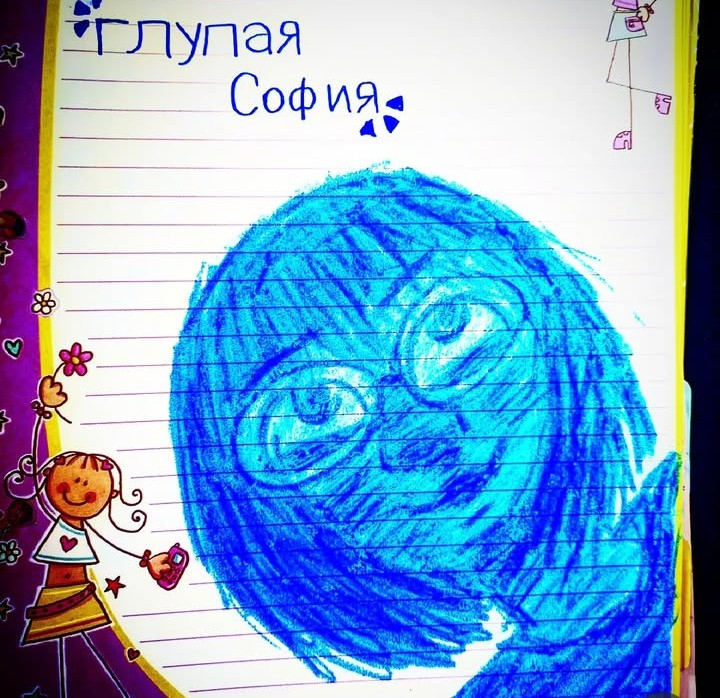 глупая
София